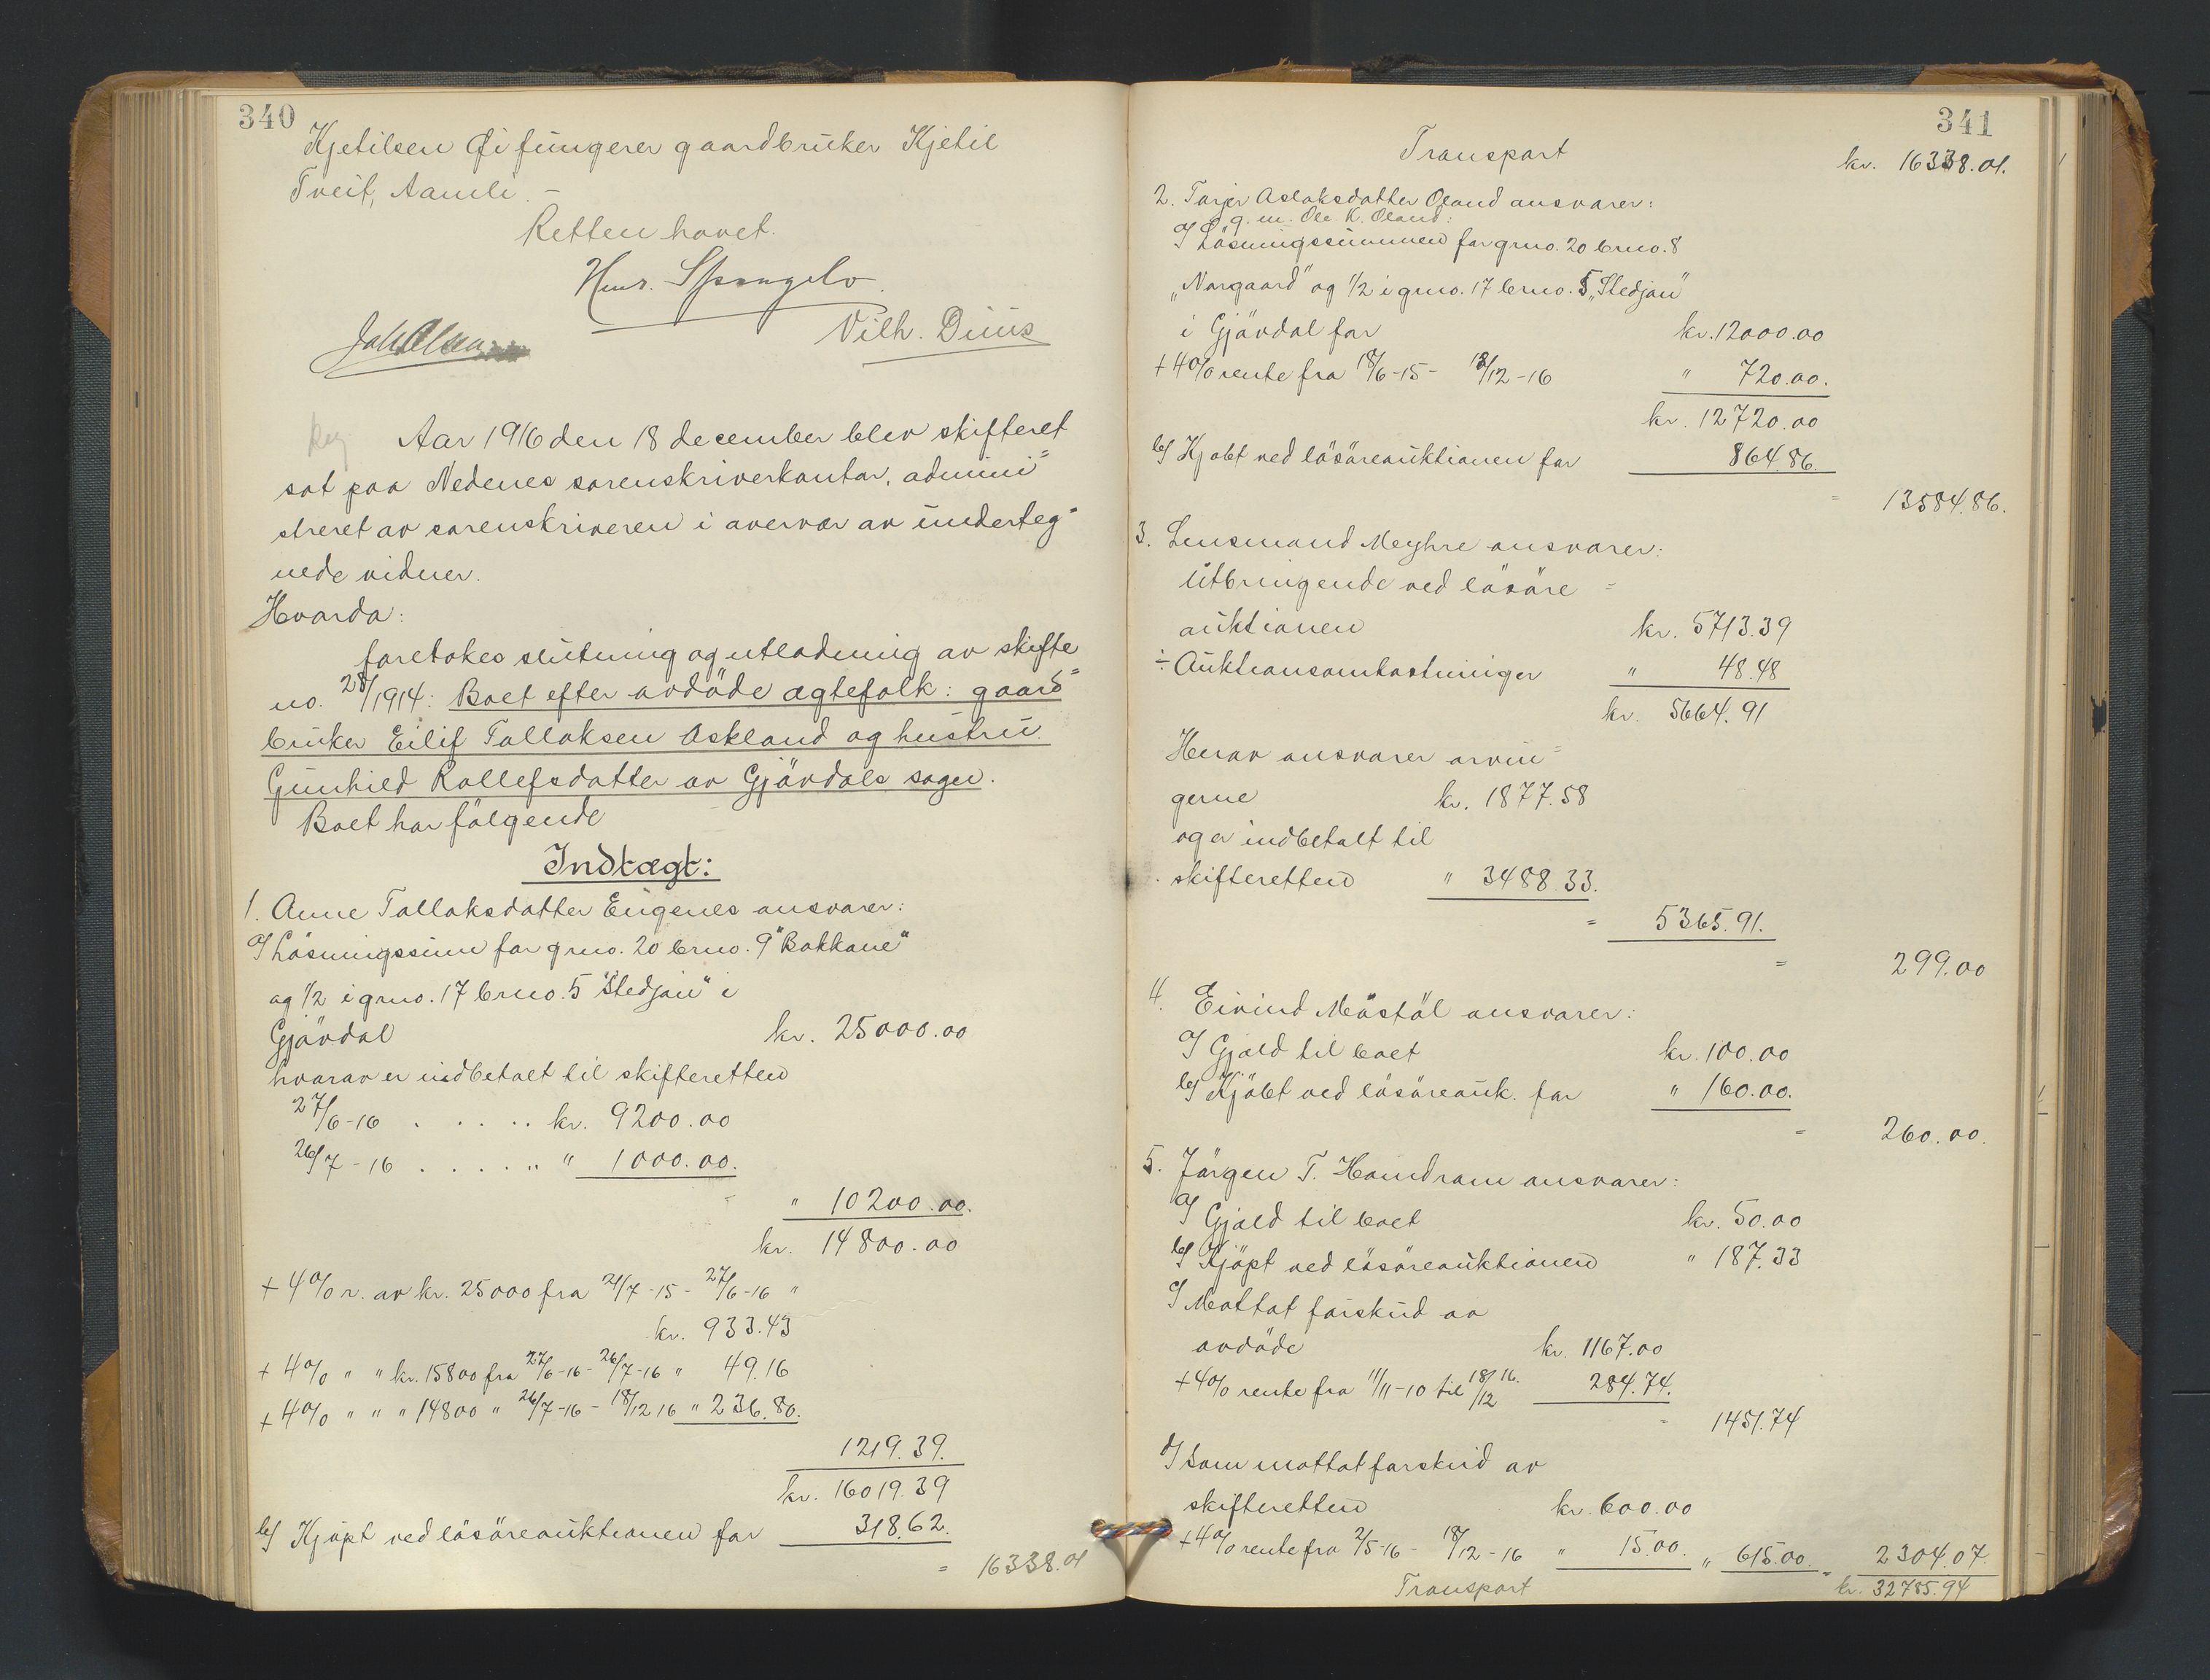 340
Kjetilsen Øi fungerer gaardbruker Kjetil
Tveit, Aamli. –
Retten hævet.
Vilh. Duus
Aar 1916 den 18 december blev skifteret
sat paa Nedenes sorenskriverkontor, admini=
streret av sorenskriveren i overvær av underteg=
nede vidner.
Hvorda:
foretokes slutning og utlodning av skifte
no. 28/1914: Boet efter avdöde ægtefolk: gaard=
bruker Eilif Tallaksen Askland og hustru
Gunhild Rollefsdatter av Gjövdals sogn.
Boet har fölgende
Indtægt:
1. Anne Tallaksdatter Eigenes ansvarer:
a/ Lösningssum for grno. 20 brno. 9 "Bakkane"
og 1/2 i grno. 17 brno. 5 "Stedjan" i
Gjövdal kr. 25000.00
hvorav er indbetalt til skifteretten
27/6-16 . . . . . kr. 9200.00
26/7-16 . . . . . " 1000.00.
= " 10200.00.
kr. 14800.00
+ 4% r. av kr. 25000 fra 21/7-15 - 27/6-16 "
kr. 933.43
+ 4% " " kr. 15800 fra 27/6-16 - 26/7-16 " 49.16
+ 4% " " " 14800 " 26/7-16 - 18/12 16 " 236.80.
1219.39.
kr. 16019.39
b/ Kjöpt ved lösöreauktionen for 318.62.
= 16338.01
341
Transport kr. 16338.01.
2. Tarjer Aslaksdatter Öland ansvarer:
g. m. Ole K. Öland:
a/ Lösningssummen for grno. 20 brno. 8
"Norgaard" og 1/2 i grno. 17 brno. 5 "Stedjan"
i Gjövdal for kr. 12000.00
+ 4% rente fra 18/6-15 - 18/12-16 " 720.00.
kr. 12720.00
b/ Kjöbt ved lösöreauktionen for 864.86.
= 13584.86.
3. Lensmand Meyhre ansvarer:
Utbringende ved lösöre=
auktionen kr. 5713.39
÷ Auktionsomkostninger " 48.48
kr. 5664.91
Herav ansvarer arvin=
gerne kr. 1877.58
og er indbetalt til
skifteretten " 3488.33.
= 5365.91.
= 299.00
4. Eivind Möstöl ansvarer:
a/ Gjæld til boet kr. 100.00
b/ Kjöbt ved lösöreauk. for " 160.00.
= 260.00.
5. Jörgen T. Homdrom ansvarer:
a/ Gjæld til boet kr. 50.00
b/ Kjöpt ved lösöreauktionen " 187.33
c/ Mottat forskud av
avdöde kr. 1167.00
+ 4% rente fra 11/11-10 til 18/12 16. 284.74.
= 1451.74
d/ Som mottat forskud av
skifteretten kr. 600.00
+ 4% rente fra 2/5-16 - 18/12-16 " 15.00. " 615.00. = 2304.07.
Transport kr. 32785.94